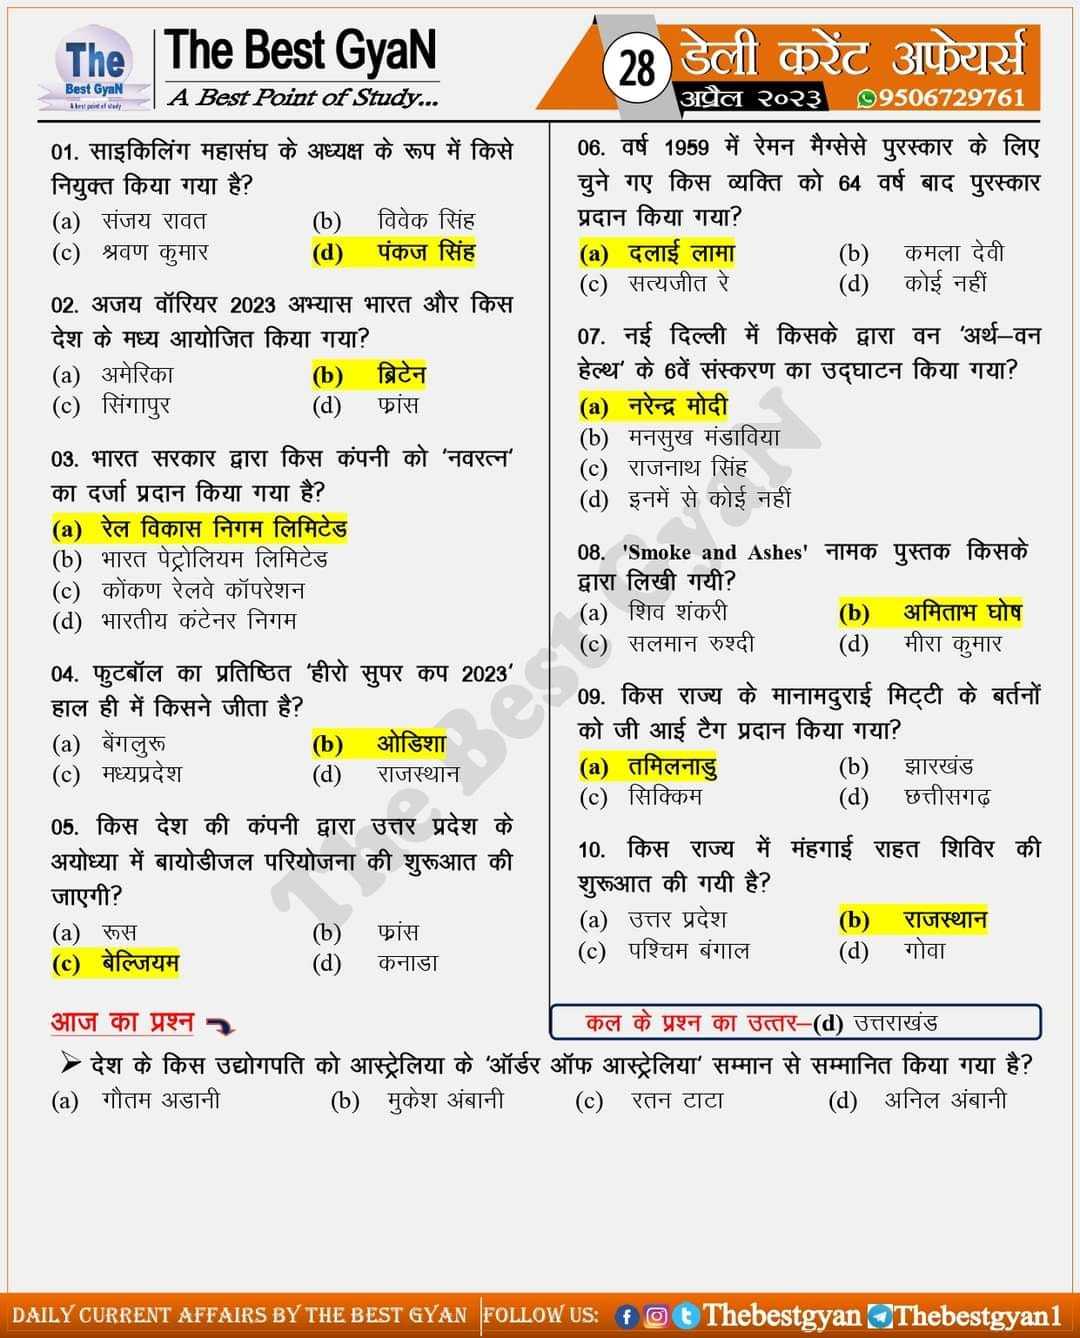 The Best GyaN
A Best point of study
The Best GyaN
A Best Point of Study...
28
डेली करेंट अफेयर्स
अप्रैल २०२३ 9506729761
01. साइकिलिंग महासंघ के अध्यक्ष के रूप में किसे
नियुक्त किया गया है?
(a) संजय रावत (b) विवेक सिंह
(c) श्रवण कुमार (d) पंकज सिंह
02. अजय वॉरियर 2023 अभ्यास भारत और किस
देश के मध्य आयोजित किया गया?
(a) अमेरिका (b) ब्रिटेन
(c) सिंगापुर (d) फ्रांस
03. भारत सरकार द्वारा किस कंपनी को 'नवरत्न'
का दर्जा प्रदान किया गया है?
(a) रेल विकास निगम लिमिटेड
(b) भारत पेट्रोलियम लिमिटेड
(c) कोंकण रेलवे कॉपरेशन
(d) भारतीय कंटेनर निगम
04. फुटबॉल का प्रतिष्ठित 'हीरो सुपर कप 2023'
हाल ही में किसने जीता है?
(a) बेंगलुरू (b) ओडिशा
(c) मध्यप्रदेश (d) राजस्थान
05. किस देश की कंपनी द्वारा उत्तर प्रदेश के
अयोध्या में बायोडीजल परियोजना की शुरूआत की
जाएगी?
(a) रूस (b) फ्रांस
(c) बेल्जियम (d) कनाडा
06. वर्ष 1959 में रेमन मैग्सेसे पुरस्कार के लिए
चुने गए किस व्यक्ति को 64 वर्ष बाद पुरस्कार
प्रदान किया गया?
(a) दलाई लामा (b) कमला देवी
(c) सत्यजीत रे (d) कोई नहीं
07. नई दिल्ली में किसके द्वारा वन 'अर्थ–वन
हेल्थ' के 6वें संस्करण का उद्घाटन किया गया?
(a) नरेन्द्र मोदी
(b) मनसुख मंडाविया
(c) राजनाथ सिंह
(d) इनमें से कोई नहीं
08. 'Smoke and Ashes' नामक पुस्तक किसके
द्वारा लिखी गयी?
(a) शिव शंकरी (b) अमिताभ घोष
(c) सलमान रुश्दी (d) मीरा कुमार
09. किस राज्य के मानामदुराई मिट्टी के बर्तनों
को जी आई टैग प्रदान किया गया?
(a) तमिलनाडु (b) झारखंड
(c) सिक्किम (d) छत्तीसगढ़
10. किस राज्य में मंहगाई राहत शिविर की
शुरूआत की गयी है?
(a) उत्तर प्रदेश (b) राजस्थान
(c) पश्चिम बंगाल (d) गोवा
The Best GyaN
आज का प्रश्न
कल के प्रश्न का उत्तर–(d) उत्तराखंड
➤ देश के किस उद्योगपति को आस्ट्रेलिया के 'ऑर्डर ऑफ आस्ट्रेलिया' सम्मान से सम्मानित किया गया है?
(a) गौतम अडानी (b) मुकेश अंबानी (c) रतन टाटा (d) अनिल अंबानी
DAILY CURRENT AFFAIRS BY THE BEST GYAN FOLLOW US: Thebestgyan Thebestgyan1